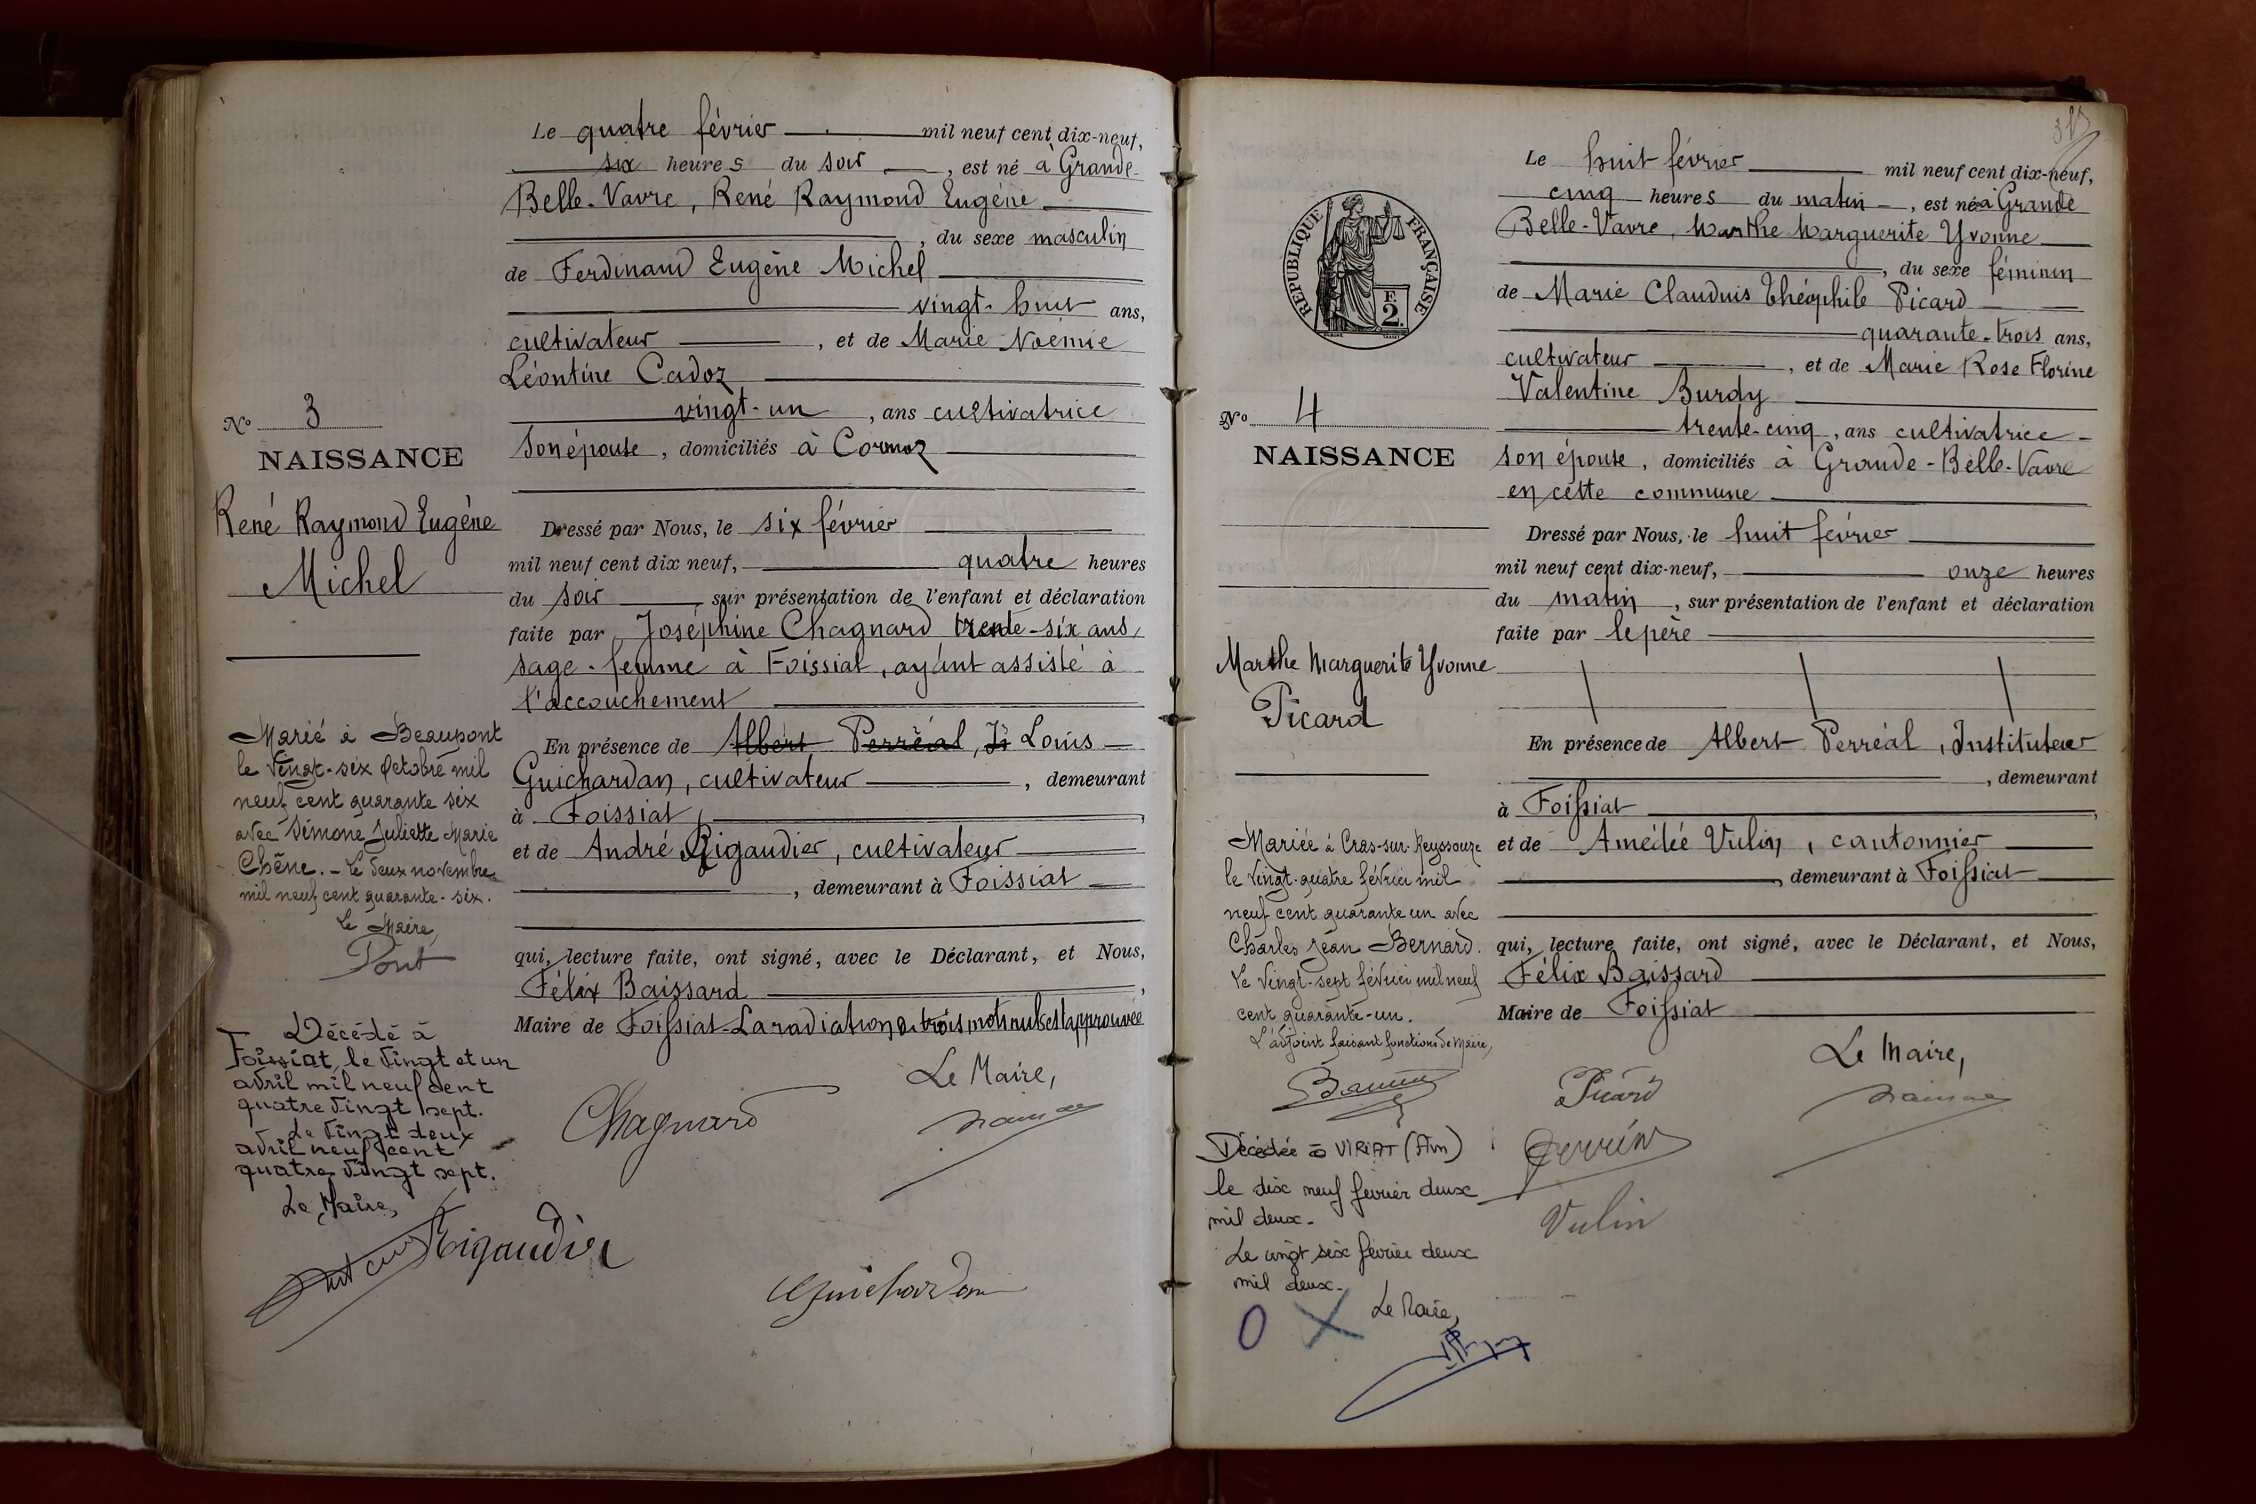 Le quatre février mil neuf cent dix-neuf,
six heures du soir, est né à Grande-
Belle-Vavre, René Raymond Eugène
, du sexe masculin
de Ferdinand Eugène Michel
vingt-huit ans,
cultivateur, et de Marie Noémie
Léontine Cadoz
vingt-un, ans cultivatrice
son épouse, domiciliés à Cormoz
No 3
NAISSANCE
René Raymond Eugène
Michel
Dressé par Nous, le six février
mil neuf cent dix neuf, quatre heures
du soir, sur présentation de l'enfant et déclaration
faite par Joséphine Chagnard trente-six ans,
sage-femme à Foissiat, ayant assisté à
l'accouchement
En présence de Albert Perréal, Is Louis
Guichardan, cultivateur, demeurant
à Foissiat,
et de André Rigaudier, cultivateur
, demeurant à Foissiat
qui, lecture faite, ont signé, avec le Déclarant, et Nous,
Félix Baissard,
Maire de Foissiat. La radiation de trois mots nuls est approuvée
Le Maire,
Chagnard
Rigaudier
Guichardan
Marié à Beaupont
le vingt-six octobre mil
neuf cent quarante six
avec Simone Juliette Marie
Chêne. - Le deux novembre
mil neuf cent quarante-six.
Le Maire,
Pont
Décédé à
Foissiat, le vingt et un
avril mil neuf cent
quatre vingt sept.
Le vingt deux
avril neuf cent
quatre vingt sept.
Le Maire,
Le huit février mil neuf cent dix-neuf,
cinq heures du matin, est née à Grande
Belle-Vavre, Marthe Marguerite Yvonne
, du sexe féminin
de Marie Claudius Théophile Picard
quarante-trois ans,
cultivateur, et de Marie Rose Florine
Valentine Burdy
trente-cinq, ans cultivatrice
son épouse, domiciliés à Grande-Belle-Vavre
en cette commune
RÉPUBLIQUE FRANÇAISE
F.
2.
No 4
NAISSANCE
Marthe Marguerite Yvonne
Picard
Dressé par Nous, le huit février
mil neuf cent dix-neuf, onze heures
du matin, sur présentation de l'enfant et déclaration
faite par le père
En présence de Albert Perréal, Instituteur
, demeurant
à Foissiat,
et de Amédée Vulin, cantonnier
, demeurant à Foissiat
qui, lecture faite, ont signé, avec le Déclarant, et Nous,
Félix Baissard
Maire de Foissiat
Le Maire,
Picard
Vulin
Mariée à Cras-sur-Reyssouze
le vingt-quatre février mil
neuf cent quarante un avec
Charles Jean Bernard.
Le vingt-sept février mil neuf
cent quarante-un.
L'adjoint faisant fonctions de Maire,
Décédée à VIRIAT (Ain)
le dix neuf février deux
mil deux.
Le vingt six février deux
mil deux.
Le Maire,
O X